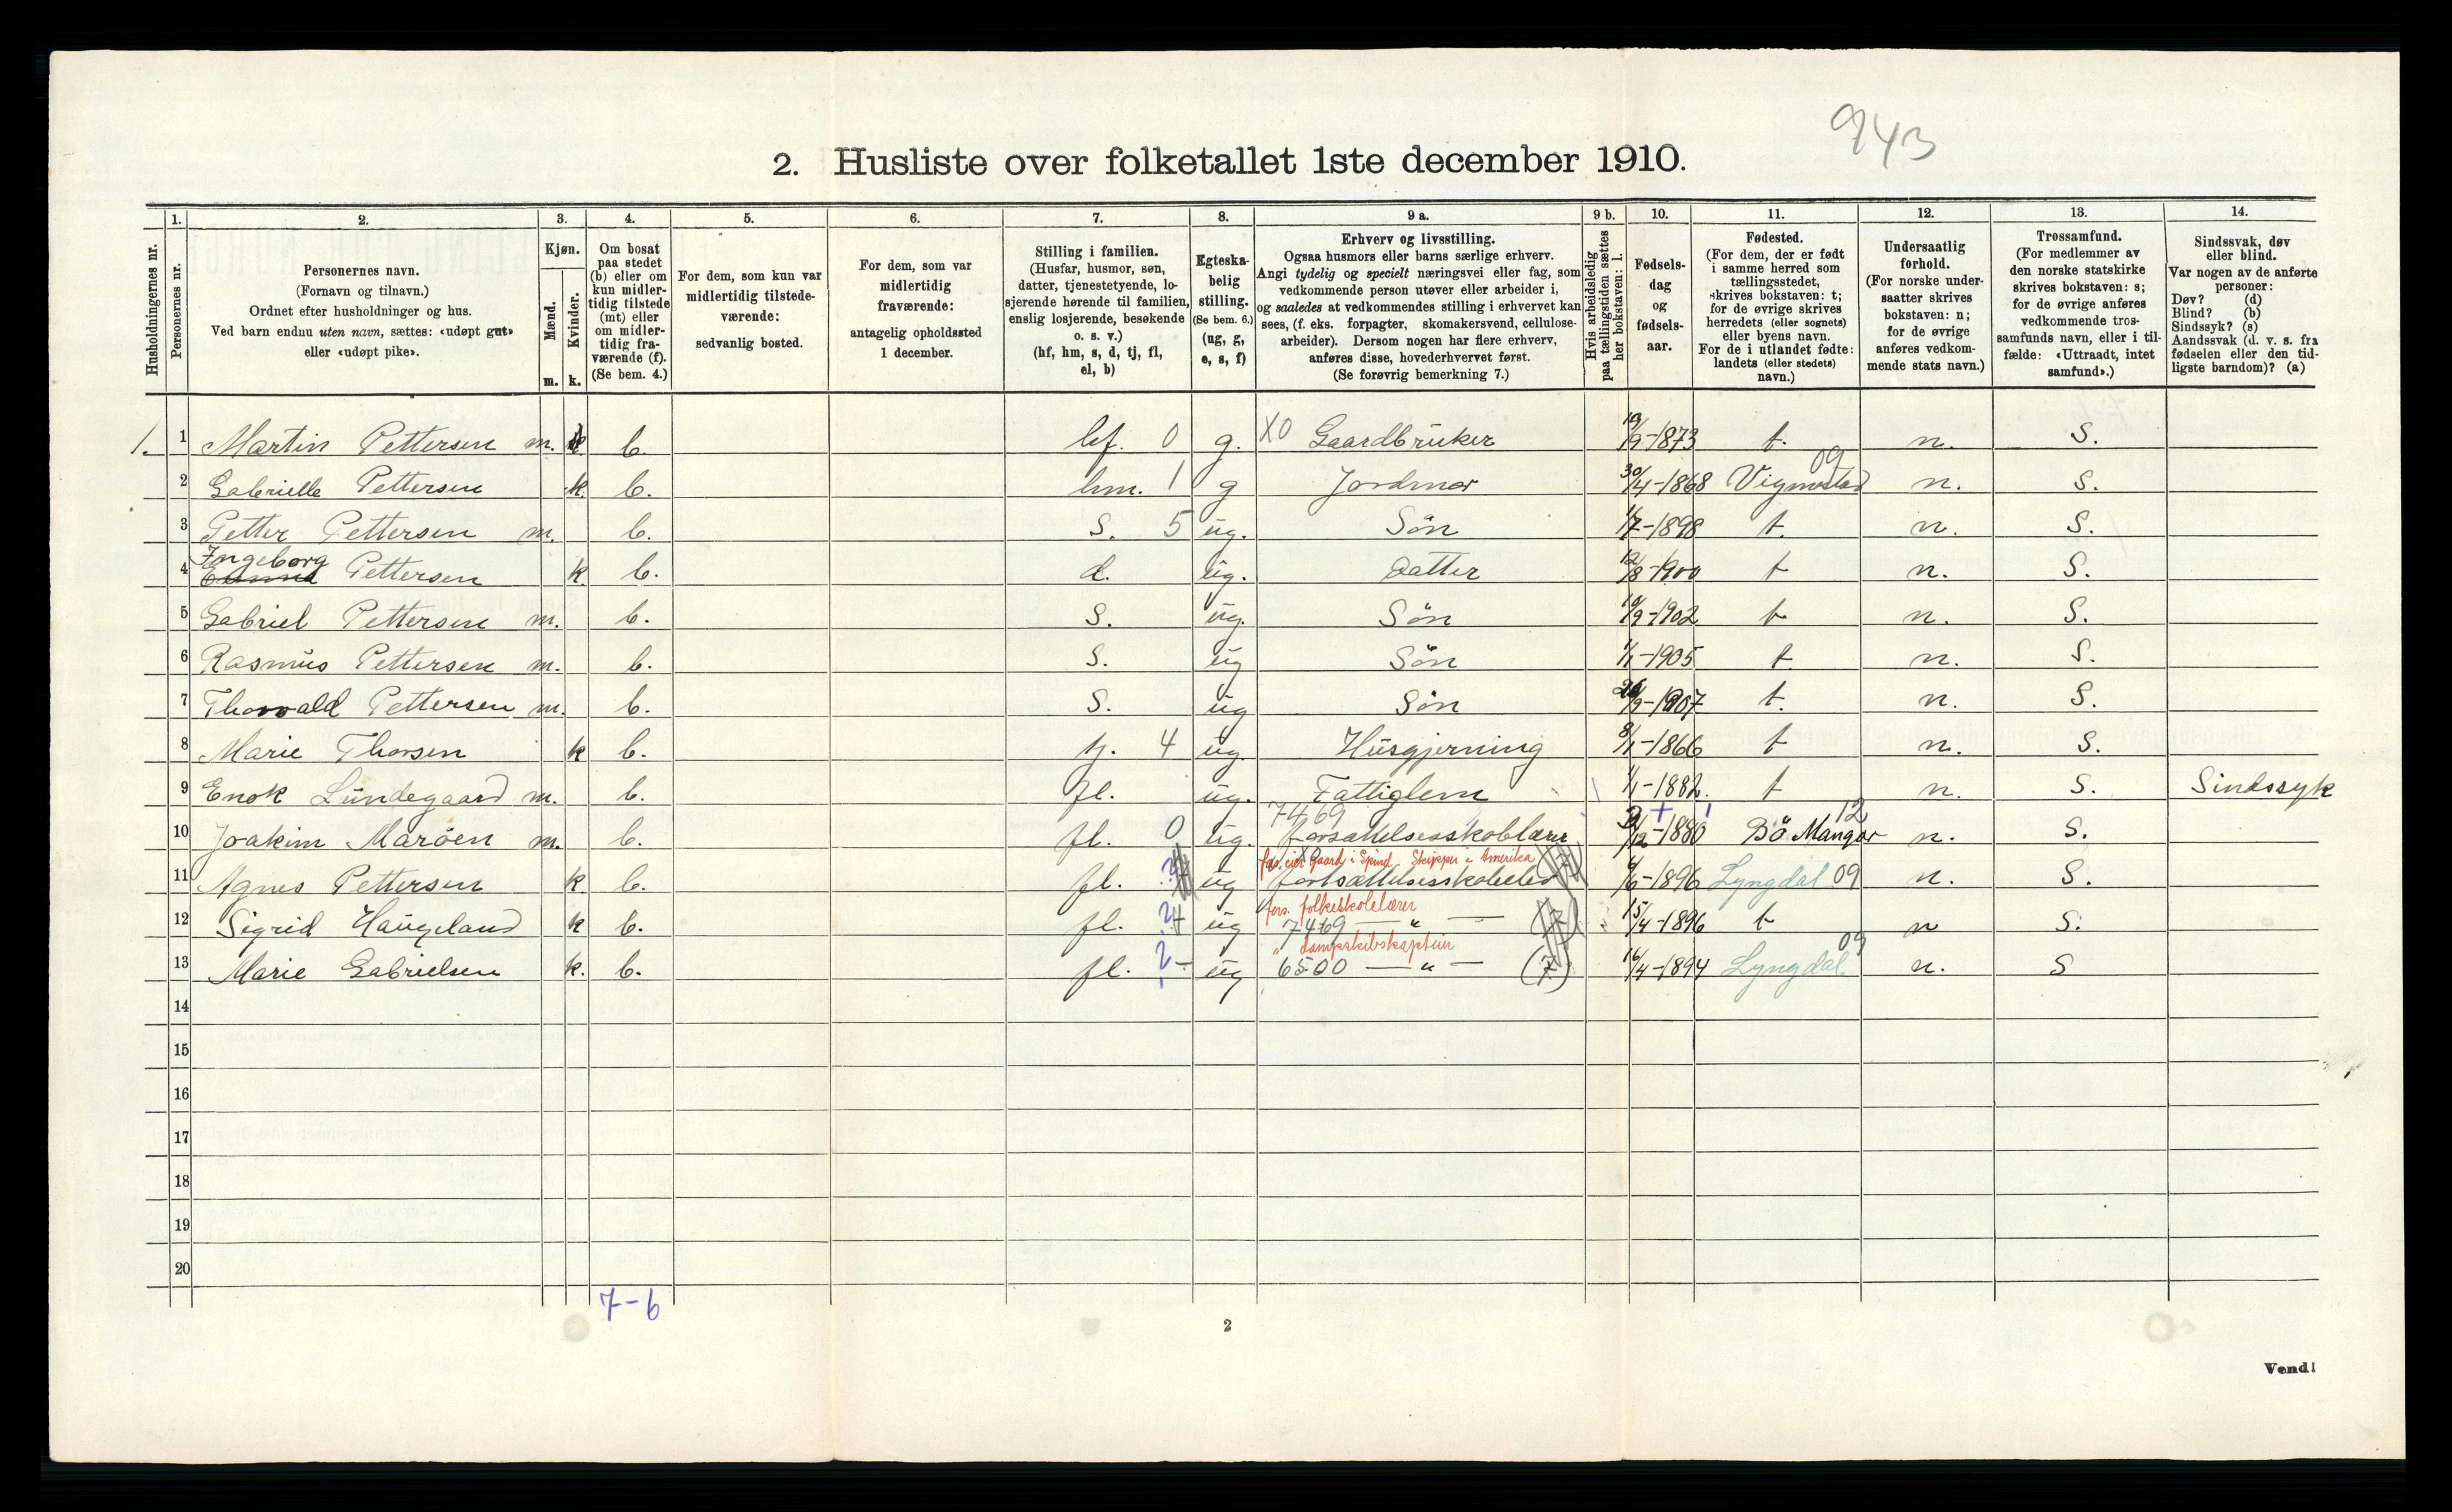 943
2. Husliste over folketallet 1ste december 1910.
1. 2. 3. 4. 5. 6. 7. 8. 9 a. 9 b. 10. 11. 12. 13. 14.
Husholdningernes nr.
Personernes nr.
Personernes navn.
(Fornavn og tilnavn.)
Ordnet efter husholdninger og hus.
Ved barn endnu uten navn, sættes: «udøpt gut»
eller «udøpt pike».
Kjøn.
Mænd.
Kvinder.
m. k.
Om bosat
paa stedet
(b) eller om
kun midler-
tidig tilstede
(mt) eller
om midler-
tidig fra-
værende (f).
(Se bem. 4.)
For dem, som kun var
midlertidig tilstede-
værende:
sedvanlig bosted.
For dem, som var
midlertidig
fraværende:
antagelig opholdssted
1 december.
Stilling i familien.
(Husfar, husmor, søn,
datter, tjenestetyende, lo-
sjerende hørende til familien,
enslig losjerende, besøkende
o. s. v.)
(hf, hm, s, d, tj, fl,
el, b)
Egteska-
belig
stilling.
(Se bem. 6.)
(ug, g,
e, s, f)
Erhverv og livsstilling.
Ogsaa husmors eller barns særlige erhverv.
Angi tydelig og specielt næringsvei eller fag, som
vedkommende person utøver eller arbeider i,
og saaledes at vedkommendes stilling i erhvervet kan
sees, (f. eks. forpagter, skomakersvend, cellulose-
arbeider). Dersom nogen har flere erhverv,
anføres disse, hovederhvervet først.
(Se forøvrig bemerkning 7.)
Hvis arbeidsledig
paa tællingstiden sættes
her bokstaven: l.
Fødsels-
dag
og
fødsels-
aar.
Fødested.
(For dem, der er født
i samme herred som
tællingsstedet,
skrives bokstaven: t;
for de øvrige skrives
herredets (eller sognets)
eller byens navn.
For de i utlandet fødte:
landets (eller stedets)
navn.)
Undersaatlig
forhold.
(For norske under-
saatter skrives
bokstaven: n;
for de øvrige
anføres vedkom-
mende stats navn.)
Trossamfund.
(For medlemmer av
den norske statskirke
skrives bokstaven: s;
for de øvrige anføres
vedkommende tros-
samfunds navn, eller i til-
fælde: «Uttraadt, intet
samfund».)
Sindssvak, døv
eller blind.
Var nogen av de anførte
personer:
Døv? (d)
Blind? (b)
Sindssyk? (s)
Aandssvak (d. v. s. fra
fødselen eller den tid-
ligste barndom)? (a)
1. 1 Martin Pettersen m. b. hf. 0 g. X0 Gaardbruker 19/9-1873 t. n. S.
2 Gabrielle Pettersen k. b. hm. 1 g Jordmor 30/4-1868 Vigmostad 09 n. S.
3 Petter Pettersen m. b. S. 5 ug. Søn 1/7-1898 t. n. S.
4 Ingeborg Pettersen k b. d. ug. Datter 12/8-1900 t n. S.
5 Gabriel Pettersen m. b. S. ug. Søn 10/9-1902 t n. S.
6 Rasmus Pettersen m. b. S. ug Søn 1/1-1905 t. n. S.
7 Thorvald Pettersen m. b. S. ug Søn 26/9-1907 t. n. S.
8 Marie Thorsen k b. tj. 4 ug. Husgjerning 8/1-1866 t n. S.
9 Enok Lundegaard m. b. fl. ug. Fattiglem 1/1-1882. t n. S. Sindssyk
7469 12
10 Joakim Marøen m. b. fl. 0 ug. forsættelsesskolelærer /12-1880 Bø Manger n. S.
fors. eier Gaard i Spind. Skipper i Amerika
11 Agnes Pettersen k b. fl. ug fortsættelsesskoleelev 6/6-1896 Lyngdal 09 n. S.
fors. folkeskolelærer
12 Sigrid Haugeland k b. fl. ?4 ug 7469 — " — (7) 15/4-1896 t n S.
" dampskibskaptein 09
13 Marie Gabrielsen k. b. fl. 2- ug 6500 — " — (7) 16/4-1894 Lyngdal n. S
14
15
16
17
18
19
20
7-6
2
Vend!